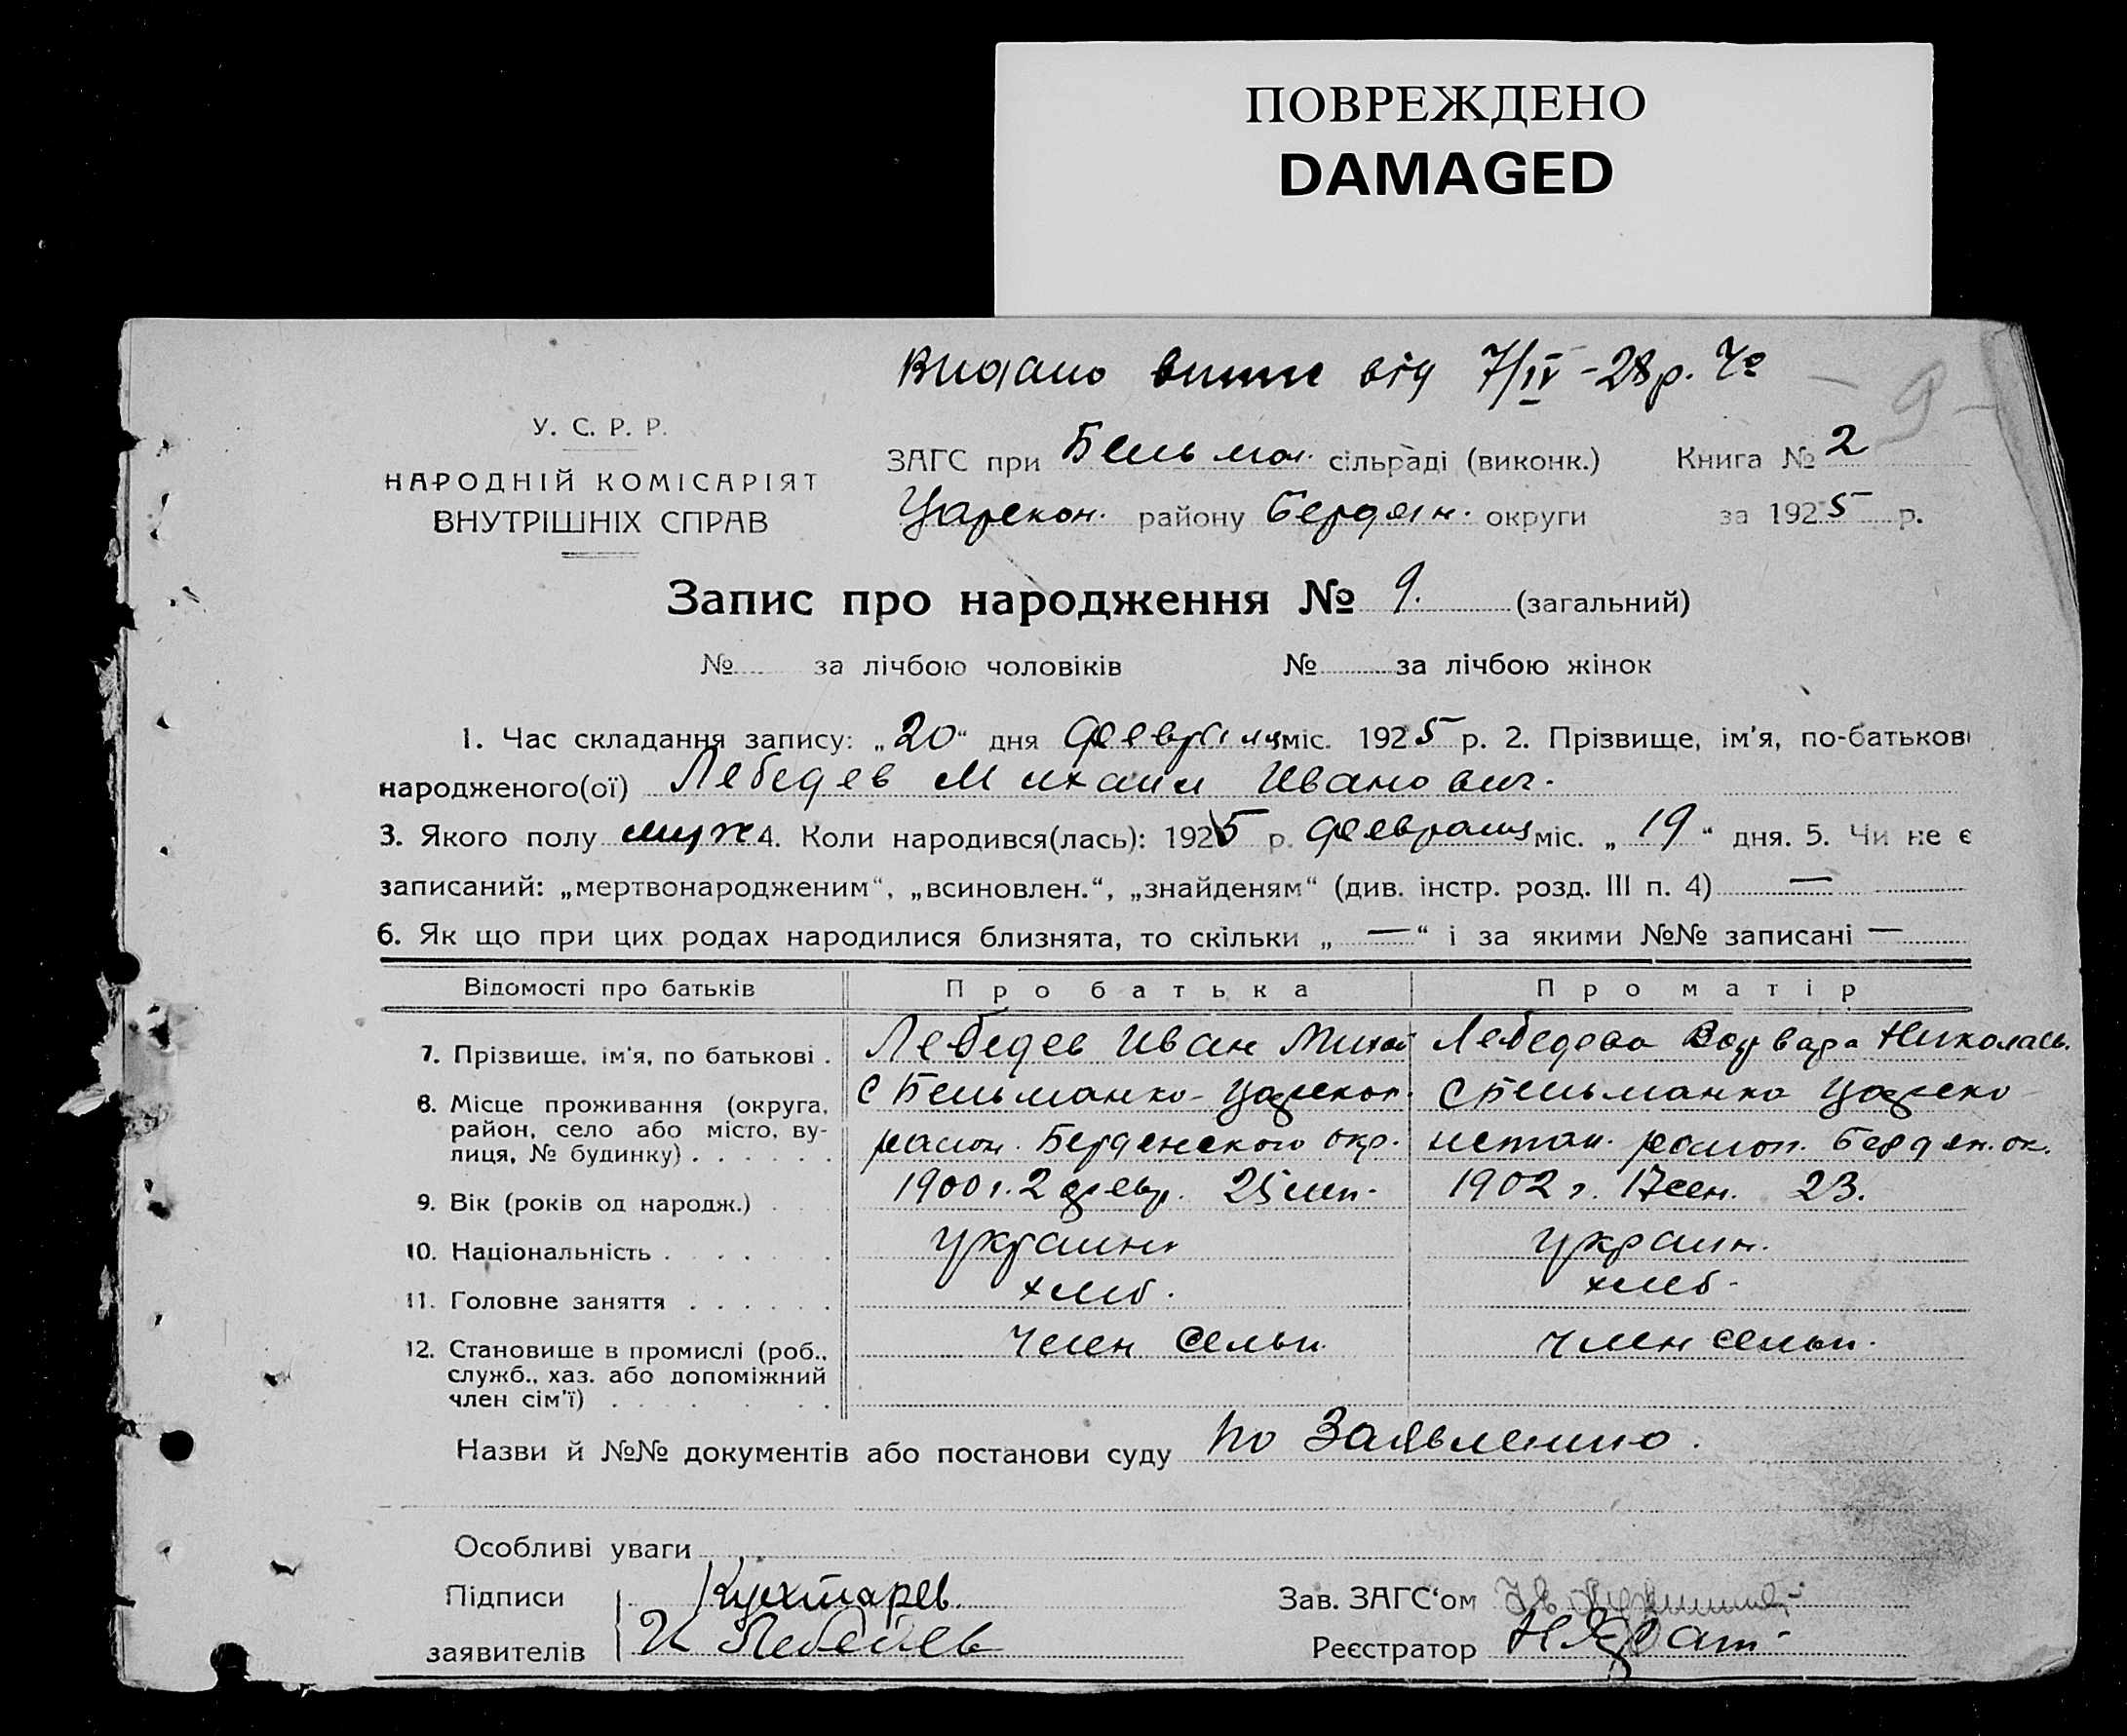 ПОВРЕЖДЕНО
DAMAGED
Видано від 7/IV-28р.
– 9 –
У. С. Р. Р.
НАРОДНІЙ КОМІСАРІЯТ
ВНУТРІШНІХ СПРАВ
ЗАГС при Бельман. сільраді (виконк.) Книга № 2
Царекон. району Бердян. округи за 1925 р.
Запис про народження № 9. (загальний)
№ за лічбою чоловіків № за лічбою жінок
1. Час складання запису: „20“ дня февраля міс. 1925 р. 2. Прізвище, ім'я, по-батькові
народженого(ої) Лебедев Михаил Иванович.
3. Якого полу муж 4. Коли народився(лась): 1925 р. февраля міс. „19“ дня. 5. Чи не є
записаний: „мертвонародженим“, „всиновлен.“, „знайденям“ (див. інстр. розд. III п. 4) —
6. Як що при цих родах народилися близнята, то скільки „—“ і за якими №№ записані —
Відомості про батьків Про батька Про матір
7. Прізвище, ім'я, по батькові . Лебедев Иван Михай Лебедева Варвара Николаев.
8. Місце проживання (округа, с Бельманко-Царекон. с Бельманка Цареко-
район, село або місто, ву-
лиця, № будинку) . . . . . . район. Берденского окр. нстан. район. Бердян. ок.
9. Вік (років од народж.) . . . 1900 г. 2 февр. 25 1902 г. 17 сен. 23.
10. Національність . . . . . . украин украин.
11. Головне заняття . . . . . . хлеб. хлеб.
12. Становище в промислі (роб., член семьи член семьи.
служб., хаз. або допоміжний
член сім'ї) . . . . . . . .
Назви й №№ документів або постанови суду по заявлению.
Особливі уваги
Підписи Кухтарев Зав. ЗАГС'ом
заявителів И Лебедев Реєстратор